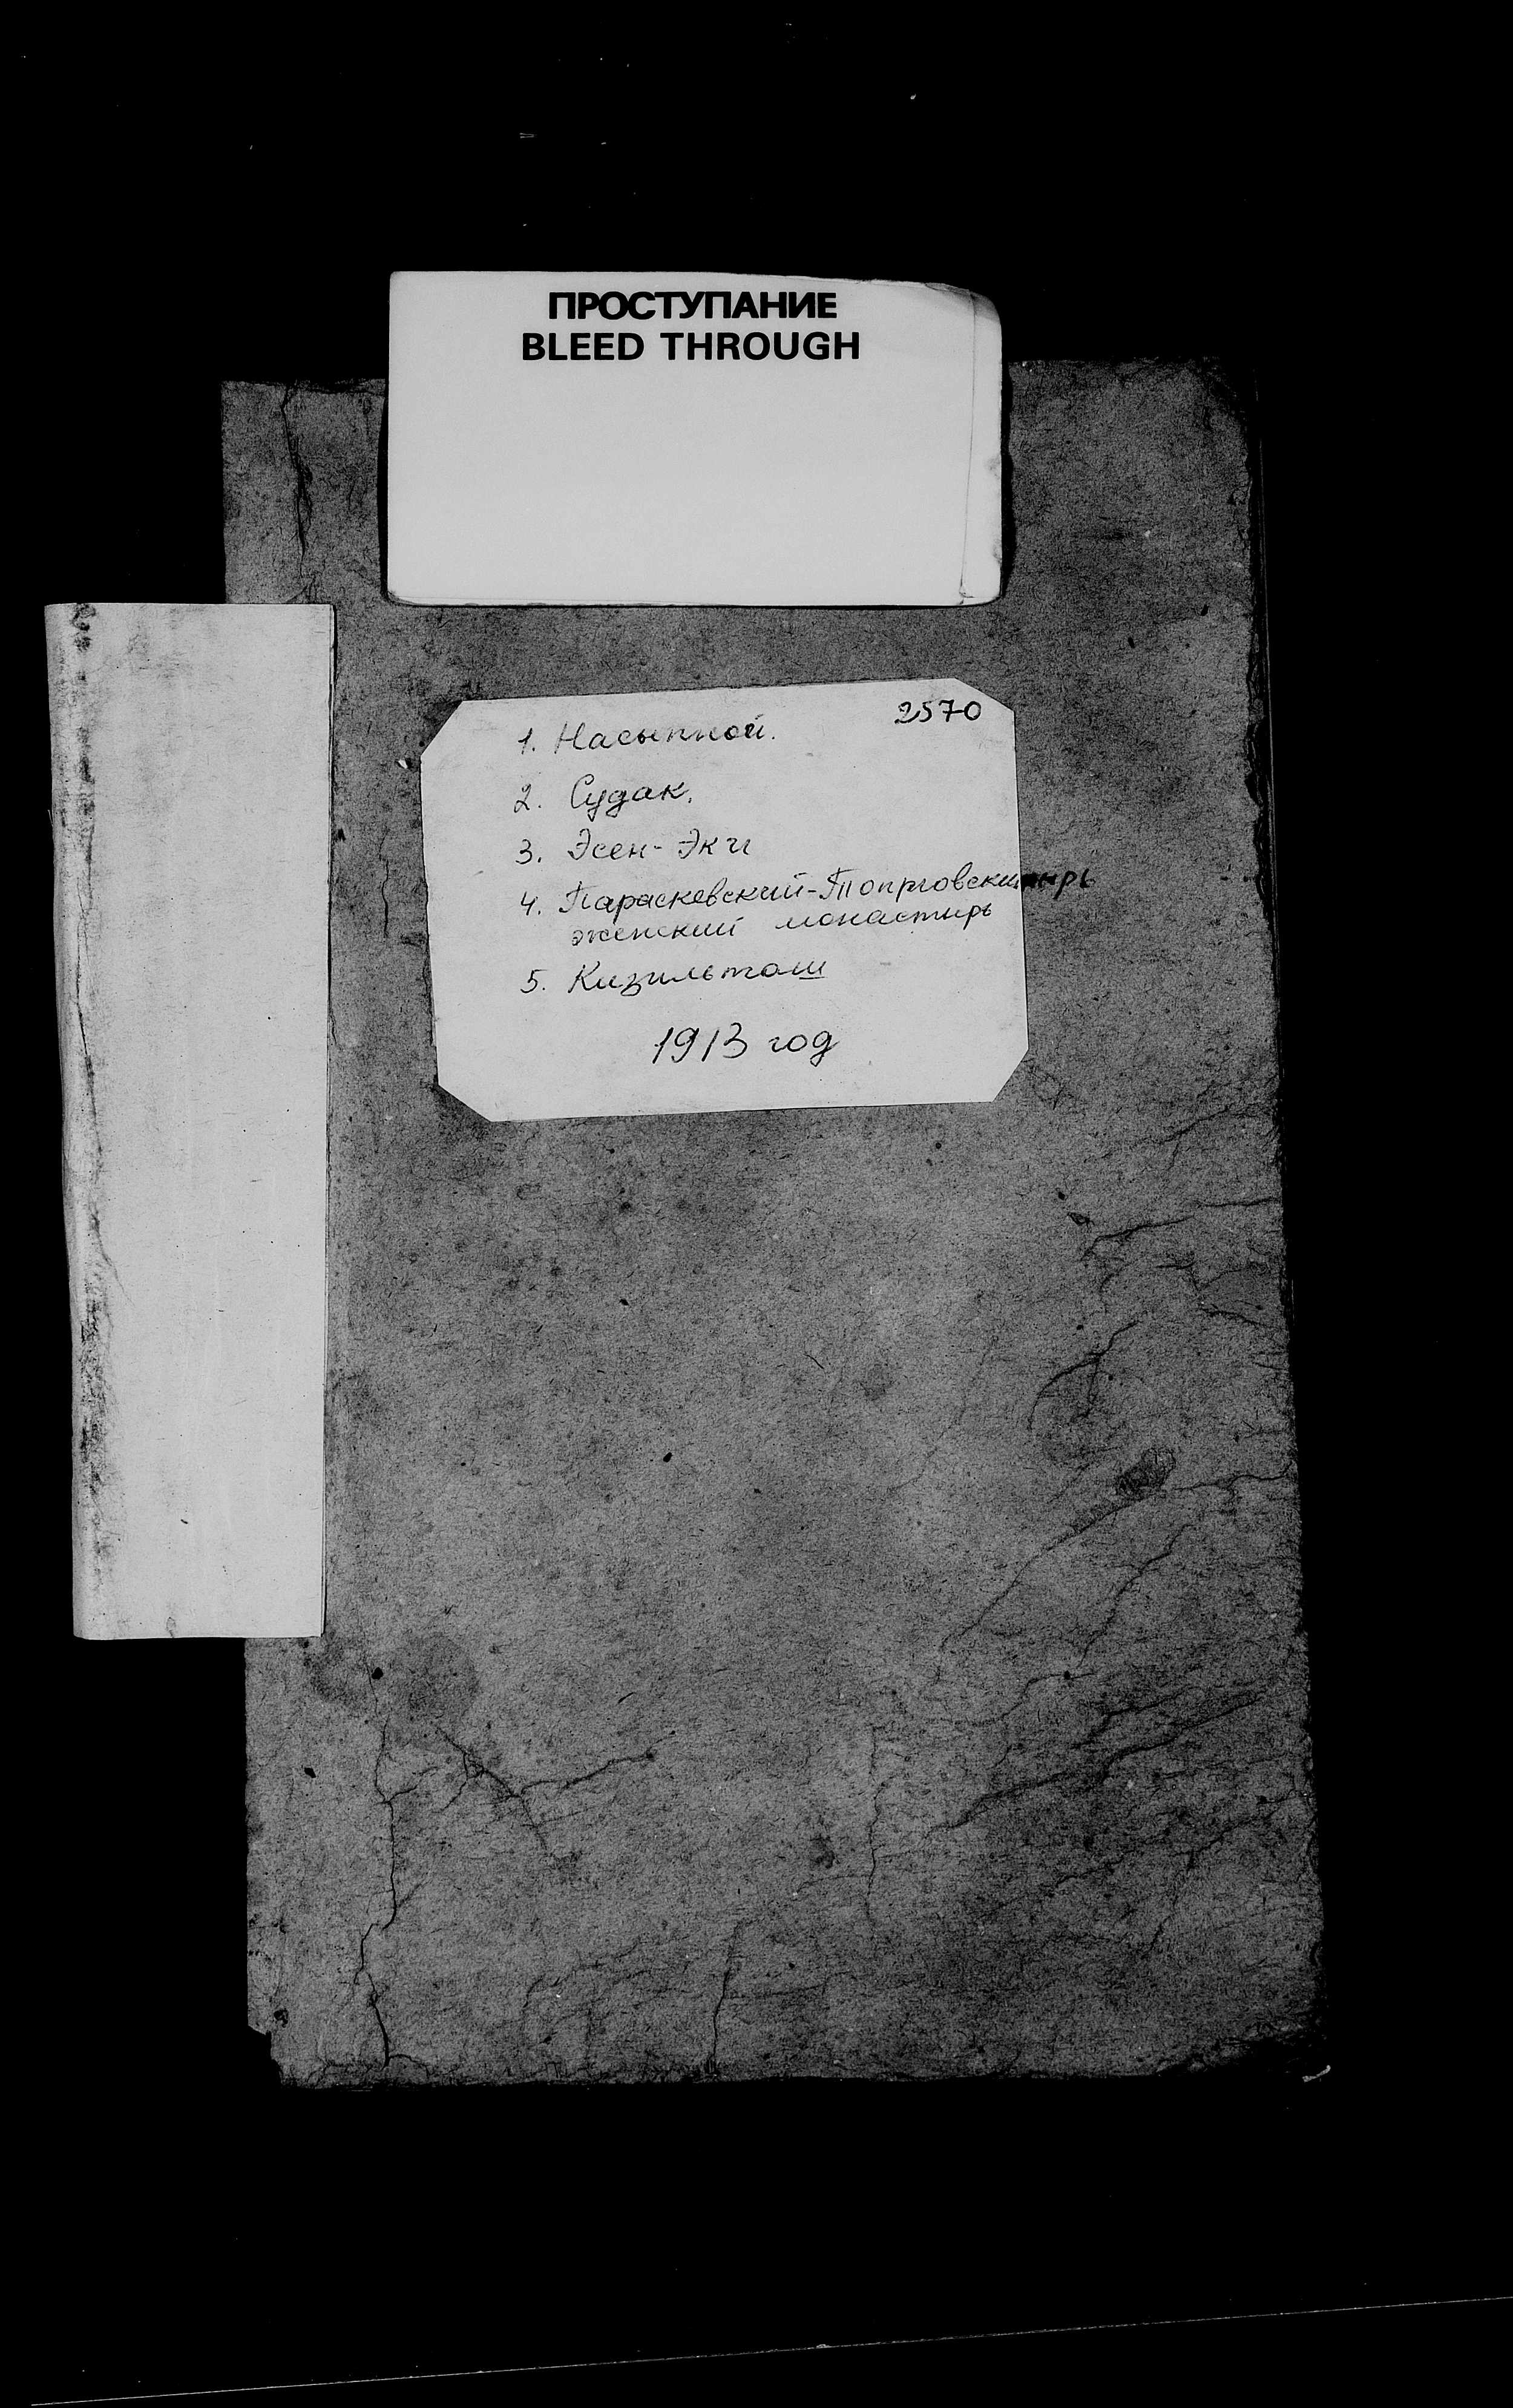 ПРОСТУПАНИЕ
BLEED THROUGH
2570
1. Насыпкой.
2. Судак.
3. Эсен-Эки
4. Параскевский-Топловский
женский монастирь
5. Кизильташ
1913 год